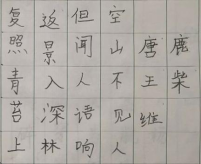 鹿柴
唐王维
空山不见人
但闻人语响
返景入深林
复照青苔上